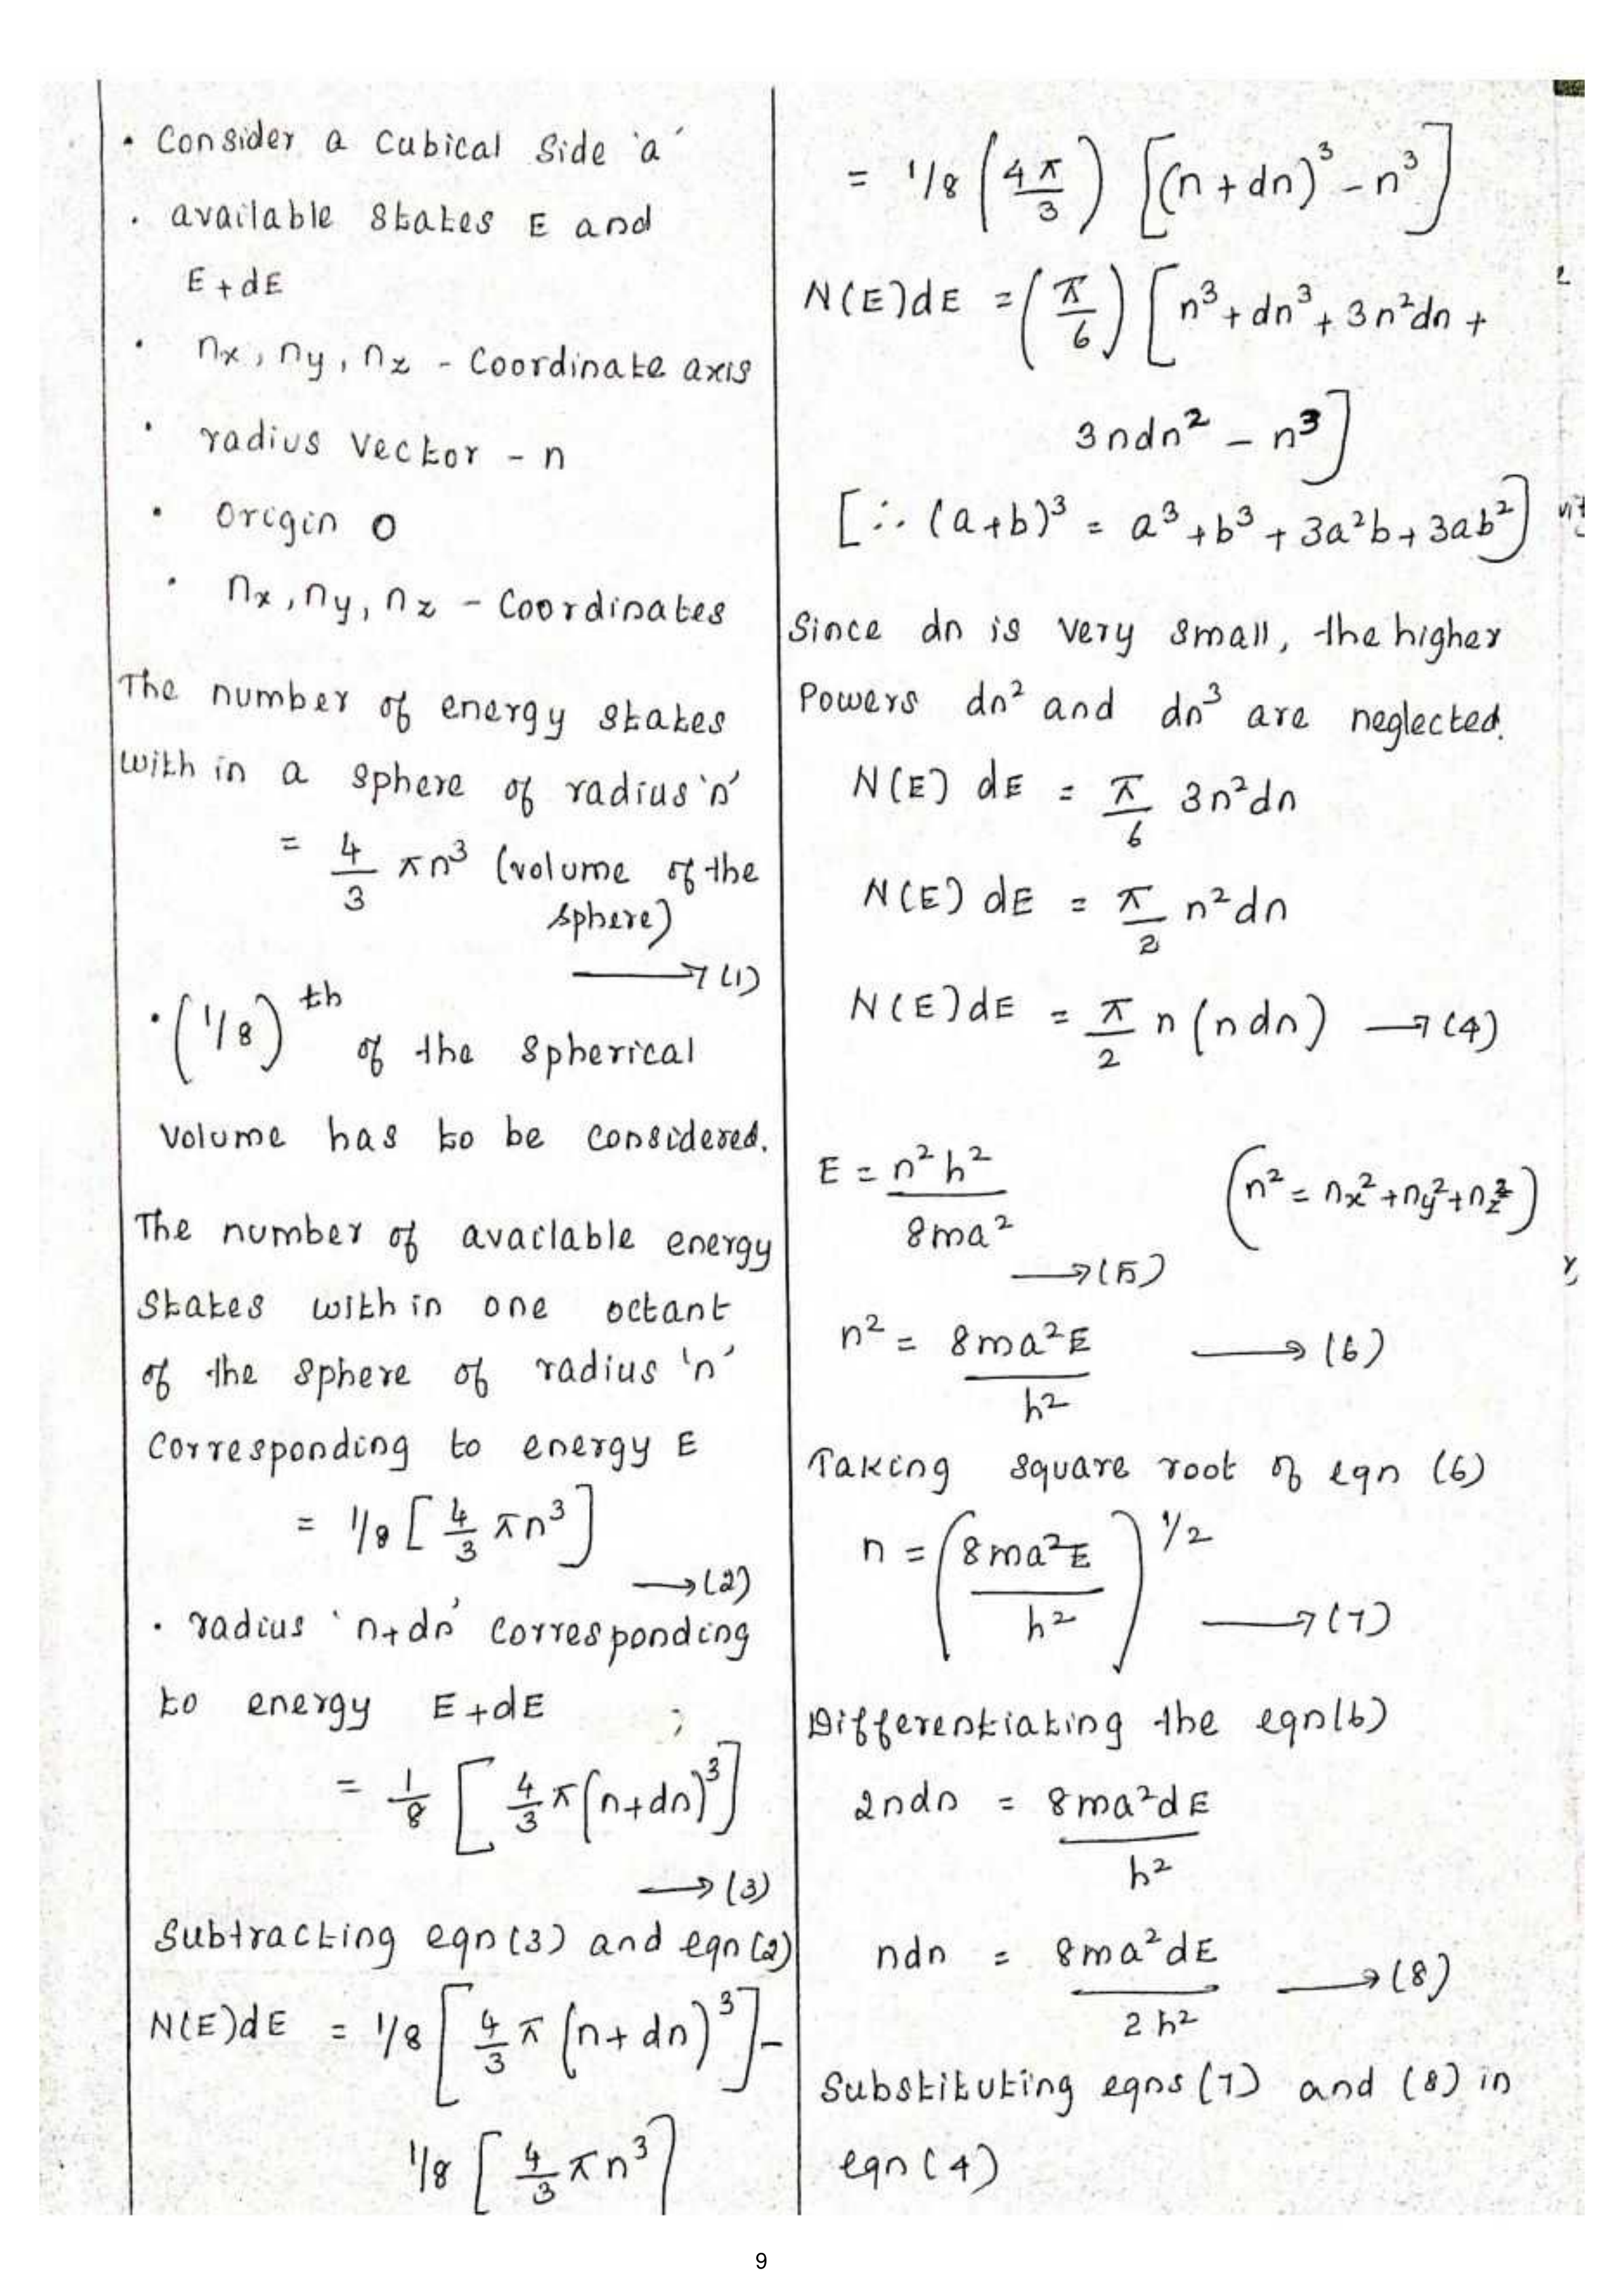 • Consider a Cubical Side 'a'
• available States E and
E+dE
• nx, ny, nz - Coordinate axis
• radius Vector - n
• Origin O
• nx, ny, nz - Coordinates
The number of energy states
with in a sphere of radius 'n'
= 4/3 πn³ (volume of the
sphere)
→ (1)
• (1/8)th of the Spherical
Volume has to be considered.
The number of available energy
States with in one octant
of the Sphere of radius 'n'
Corresponding to energy E
= 1/8 [4/3 πn³]
→ (2)
• radius 'n+dn' Corresponding
to energy E+dE
= 1/8 [4/3 π(n+dn)³]
→ (3)
Subtracting eqn (3) and eqn (2)
N(E)dE = 1/8 [4/3 π (n+dn)³] -
1/8 [4/3 πn³]
= 1/8 (4π/3) [(n+dn)³ - n³]
N(E)dE = (π/6) [n³ + dn³ + 3n²dn +
3ndn² - n³]
[∴ (a+b)³ = a³+b³+3a²b+3ab²]
Since dn is very small, the higher
Powers dn² and dn³ are neglected.
N(E) dE = π/6 3n²dn
N(E) dE = π/2 n²dn
N(E)dE = π/2 n (ndn) → (4)
E = n²h²/8ma² (n² = nx²+ny²+nz²)
→ (5)
n² = 8ma²E/h² → (6)
Taking square root of eqn (6)
n = (8ma²E/h²)1/2 → (7)
Differentiating the eqn(6)
2ndn = 8ma²dE/h²
ndn = 8ma²dE/2h² → (8)
Substituting eqns (7) and (8) in
eqn (4)
9